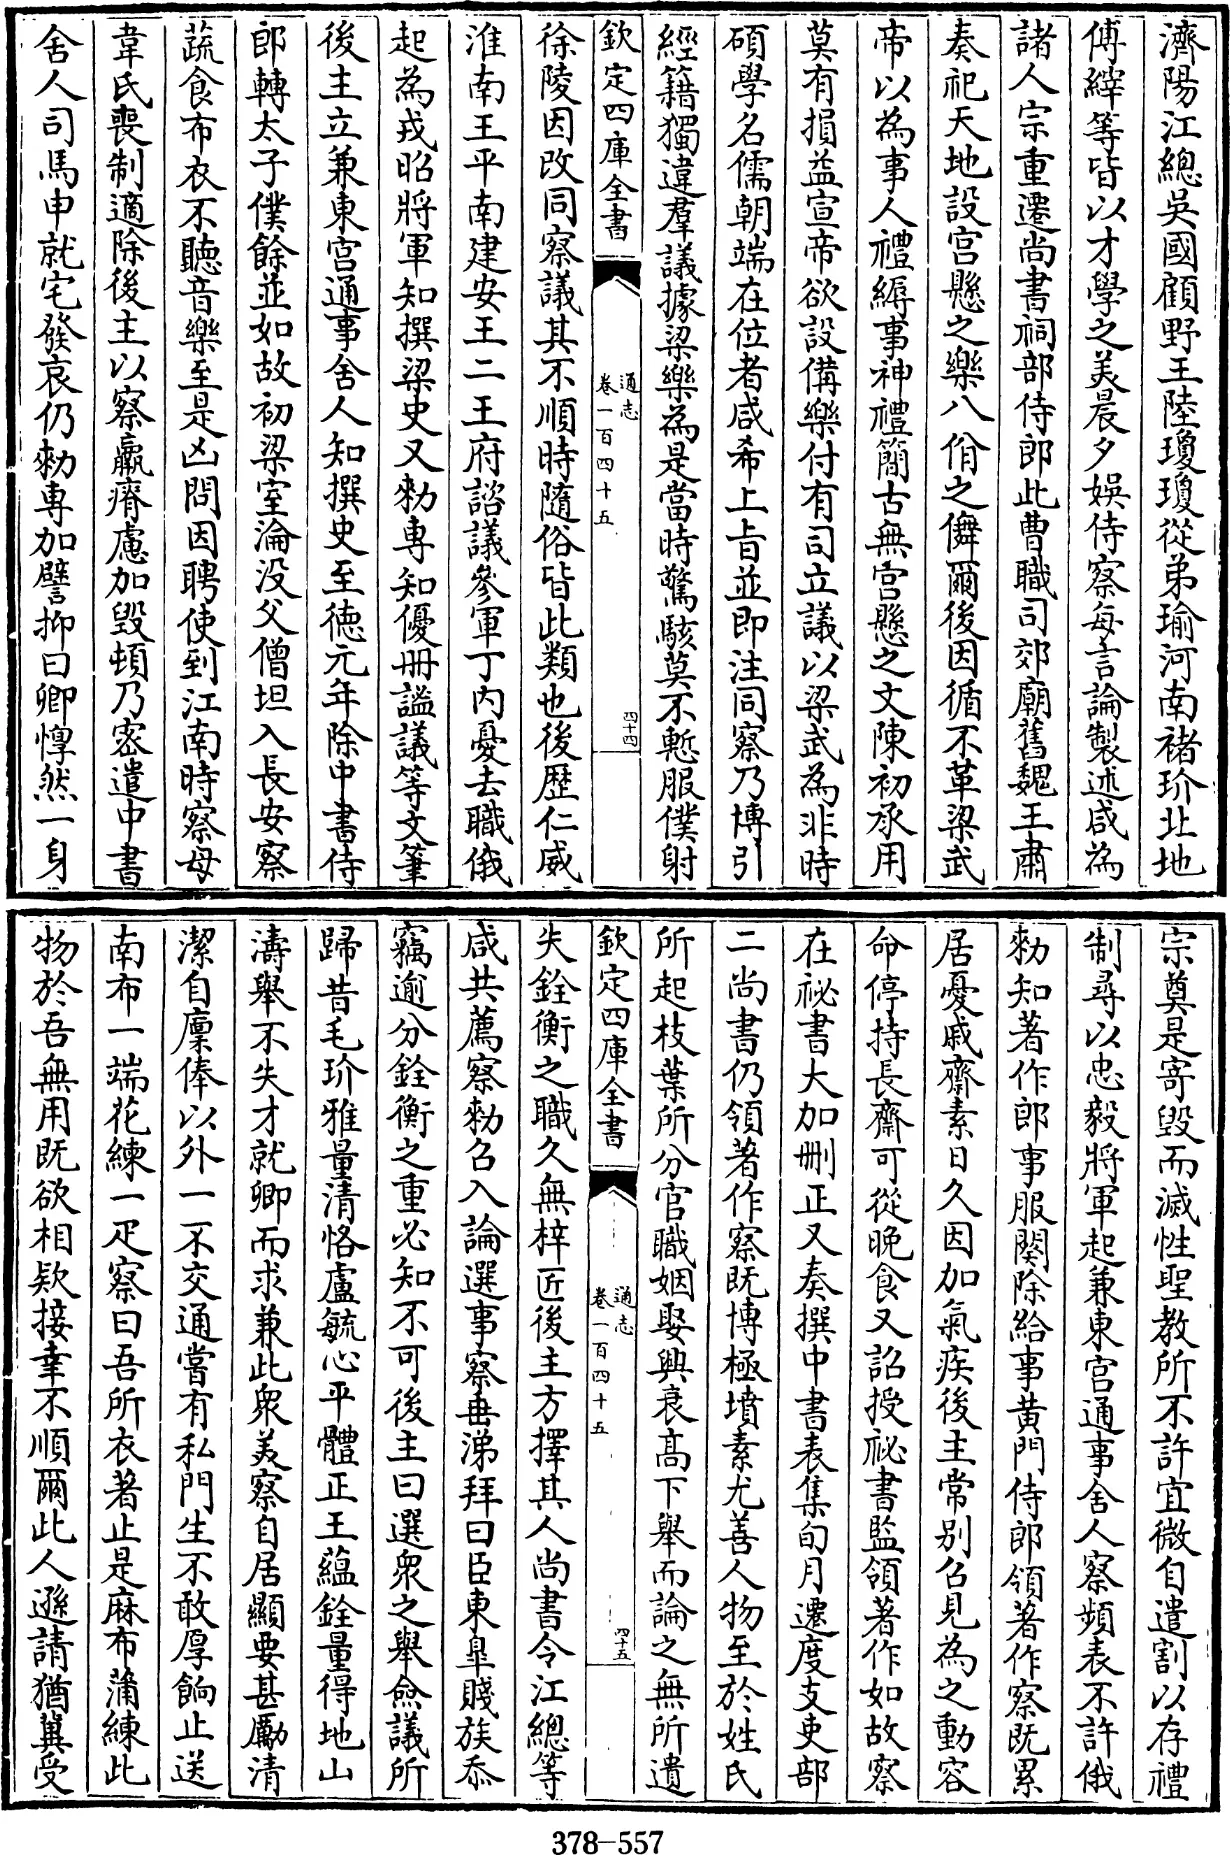 濟陽江總吳國顧野王陸瓊瓊從弟瑜河南褚玠北地
傅縡等皆以才學之美晨夕娛侍察每言論製述咸為
諸人宗重遷尚書祠部侍郎此曹職司郊廟舊魏王肅
奏祀天地設宫懸之樂八佾之儛爾後因循不革梁武
帝以為事人禮縟事神禮簡古無宫懸之文陳初承用
莫有損益宣帝欲設備樂付有司立議以梁武為非時
碩學名儒朝端在位者咸希上旨並即注同察乃博引
經籍獨違羣議據梁樂為是當時驚駭莫不慙服僕射
欽定四庫全書
通志
卷一百四十五
四十四
徐陵因改同察議其不順時隨俗皆此類也後歷仁威
淮南王平南建安王二王府諮議參軍丁内憂去職俄
起為戎昭將軍知撰梁史又勅專知優冊謚議等文筆
後主立兼東宫通事舍人知撰史至德元年除中書侍
郎轉太子僕餘並如故初梁室淪没父僧坦入長安察
蔬食布衣不聽音樂至是凶問因聘使到江南時察母
韋氏喪制適除後主以察羸瘠慮加毀頓乃密遣中書
舍人司馬申就宅發哀仍勅專加譬抑曰卿惸然一身
宗奠是寄毀而滅性聖教所不許宜微自遣割以存禮
制尋以忠毅將軍起兼東宫通事舍人察頻表不許俄
勅知著作郎事服闋除給事黄門侍郎領著作察既累
居憂戚齋素日久因加氣疾後主常别召見為之動容
命停持長齋可從晚食又詔授祕書監領著作如故察
在祕書大加刪正又奏撰中書表集旬月遷度支吏部
二尚書仍領著作察既博極墳素尤善人物至於姓氏
所起枝葉所分官職姻娶興衰高下舉而論之無所遺
欽定四庫全書
通志
卷一百四十五
四十五
失銓衡之職久無梓匠後主方擇其人尚書令江總等
咸共薦察勅召入論選事察垂涕拜曰臣東臯賤族忝
竊逾分銓衡之重必知不可後主曰選衆之舉僉議所
歸昔毛玠雅量清恪盧毓心平體正王藴銓量得地山
濤舉不失才就卿而求兼此衆美察自居顯要甚勵清
潔自廩俸以外一不交通嘗有私門生不敢厚餉止送
南布一端花練一疋察曰吾所衣著止是麻布蒲練此
物於吾無用既欲相欵接幸不順爾此人遜請猶冀受
378-557